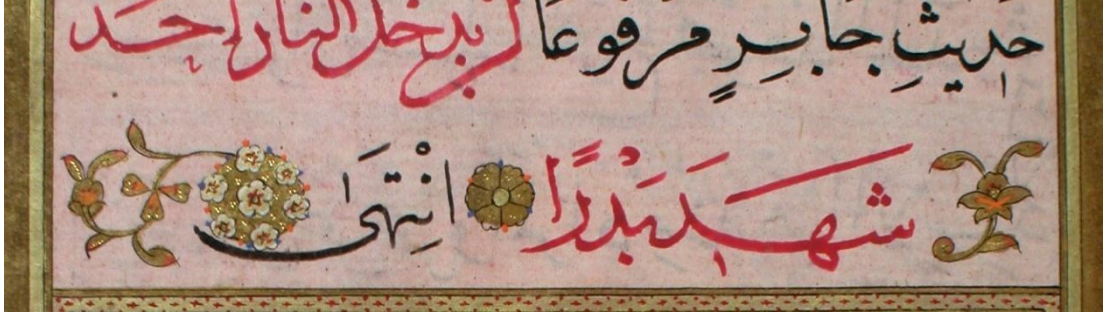 حديثِ جابرٍ مرفوعا لن يدخل النار احد
شهد بَدْرًا انْتهى